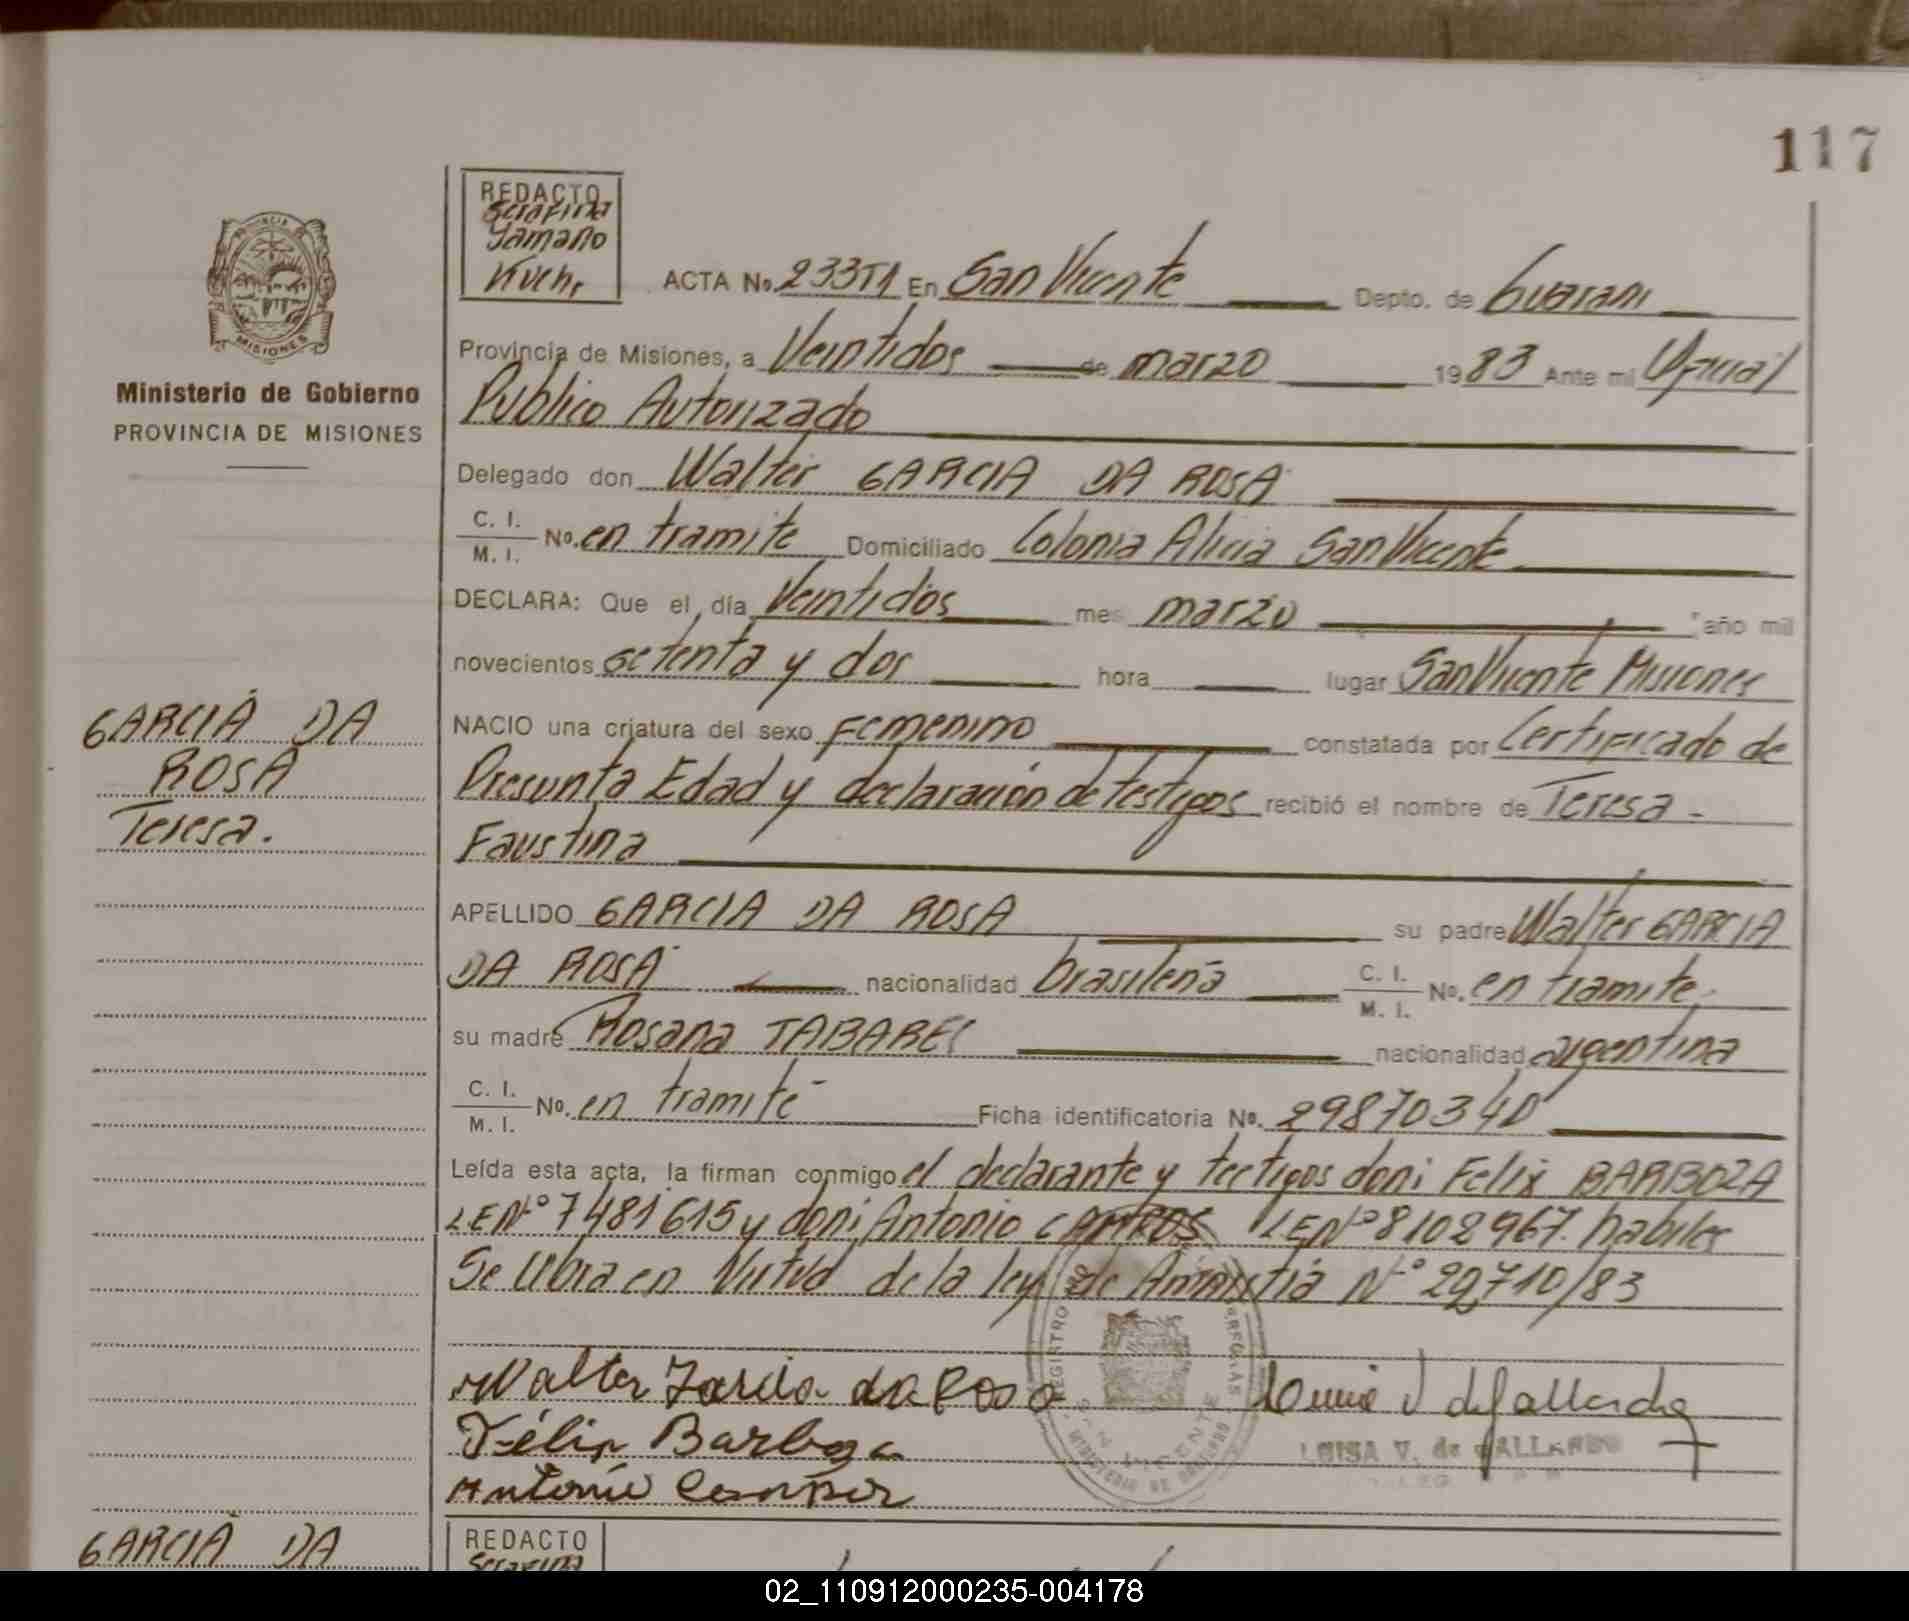 117
REDACTO
Serafina
Yamano
ACTA No. 233T1 En San Vicente Depto. de Guarani
Provincia de Misiones, a Veintidos de marzo 1983 Ante mi Oficial
Publico Autorizado
MISIONES
Ministerio de Gobierno
PROVINCIA DE MISIONES
Delegado don Walter GARCIA DA ROSA
C. I.
M. I. No. en tramite Domiciliado Colonia Alicia San Vicente
DECLARA: Que el día Veintidos mes marzo año mil
novecientos setenta y dos hora lugar San Vicente Misiones
GARCIA DA
ROSA
Teresa.
NACIO una criatura del sexo Femenino constatada por Certificado de
Presunta Edad y declaración de testigos recibió el nombre de Teresa -
Faustina
APELLIDO GARCIA DA ROSA su padre Walter GARCIA
DA ROSA nacionalidad brasileña C. I.
M. I. No. en tramite
su madre Rosana TABAREC nacionalidad argentina
C. I.
M. I. No. en tramite Ficha identificatoria No. 29870340
Leída esta acta, la firman conmigo el declarante y testigos don: Felix BARBOZA
LE Nº 7481615 y don: Antonio LE Nº 8102967. habiles
Se labra en Virtud de la ley de Amnistia Nº 22710/83
Walter Garcia da Rosa
Félix Barboza
Antonio
LUISA V. de GALLARDO
REGISTRO
SAN VICENTE
MINISTERIO DE GOBIERNO
GARCIA DA
REDACTO
Serafina
02_110912000235-004178